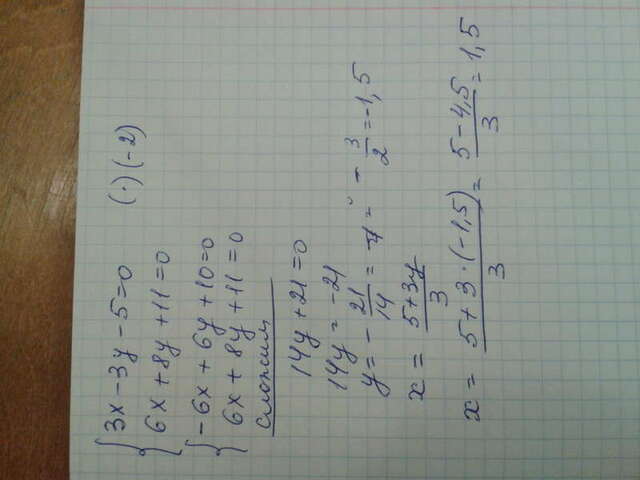 {3x - 3y - 5 = 0 (·)(-2)
{6x + 8y + 11 = 0
{-6x + 6y + 10 = 0
{6x + 8y + 11 = 0
сложим
14y + 21 = 0
14y = -21
y = -21/14 = = -3/2 = -1,5
x = (5+3y)/3
x = (5+3·(-1,5))/3 = (5-4,5)/3 = 1,5